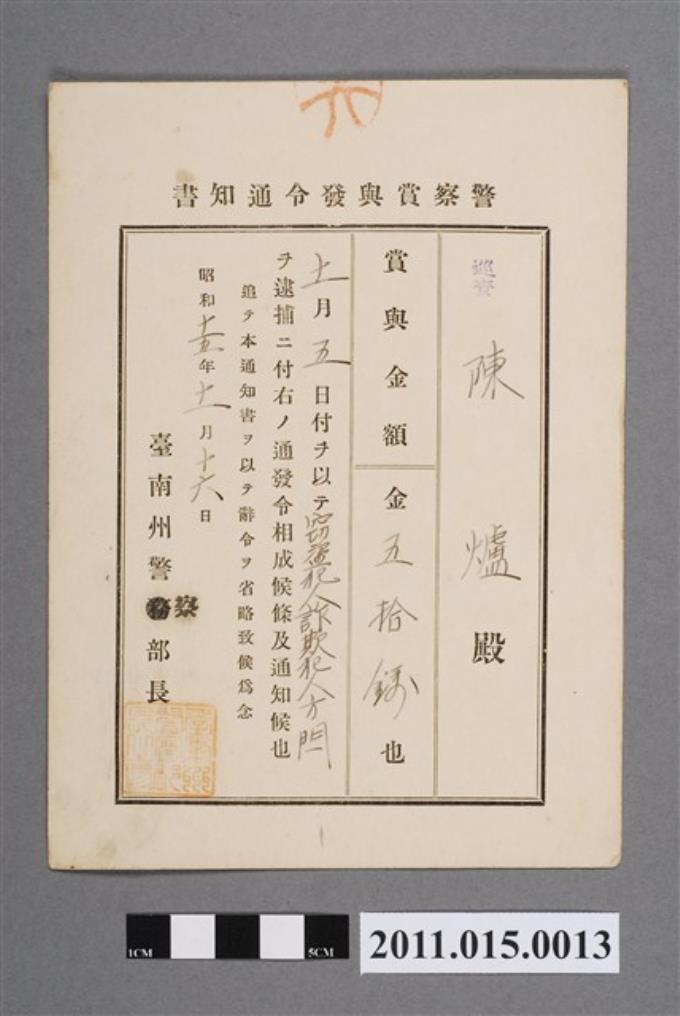 警察賞與發令通知書
巡查
陳爐殿
賞與金額
金五拾錢也
十一月五日付ヲ以テ窃盗犯人詐欺犯人
ヲ逮捕ニ付右ノ通發令相成候條及通知候也
追テ本通知書ヲ以テ辭令ヲ省略致候爲念
昭和十五年十一月十六日
臺南州警察部長
1CM
5CM
2011.015.0013